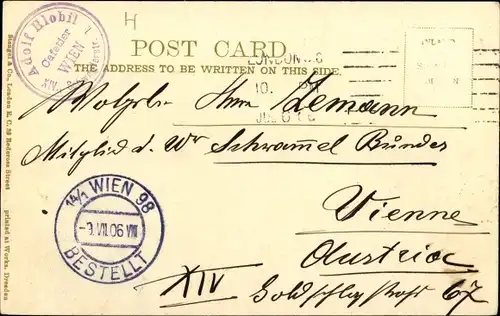 H
Adolf Klobil
Cafetier
WIEN
XIV.
POST CARD
THE ADDRESS TO BE WRITTEN ON THIS SIDE.
LONDON
10. PM
Wolgeb. Herrn Lemann
Mitglied d. Wr Schramel Bundes
Vienne
Austria
XIV Goldschlagstraße 67
14/1 WIEN 98
-9 VII.06 VIII
BESTELLT
Stengel & Co., London E. C. 39 Redcross Street printed at Works, Dresden